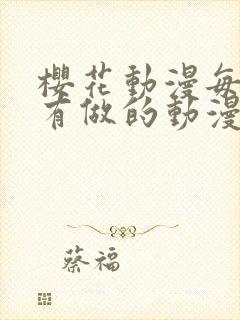 櫻花動漫每
有做的動漫
蔡福